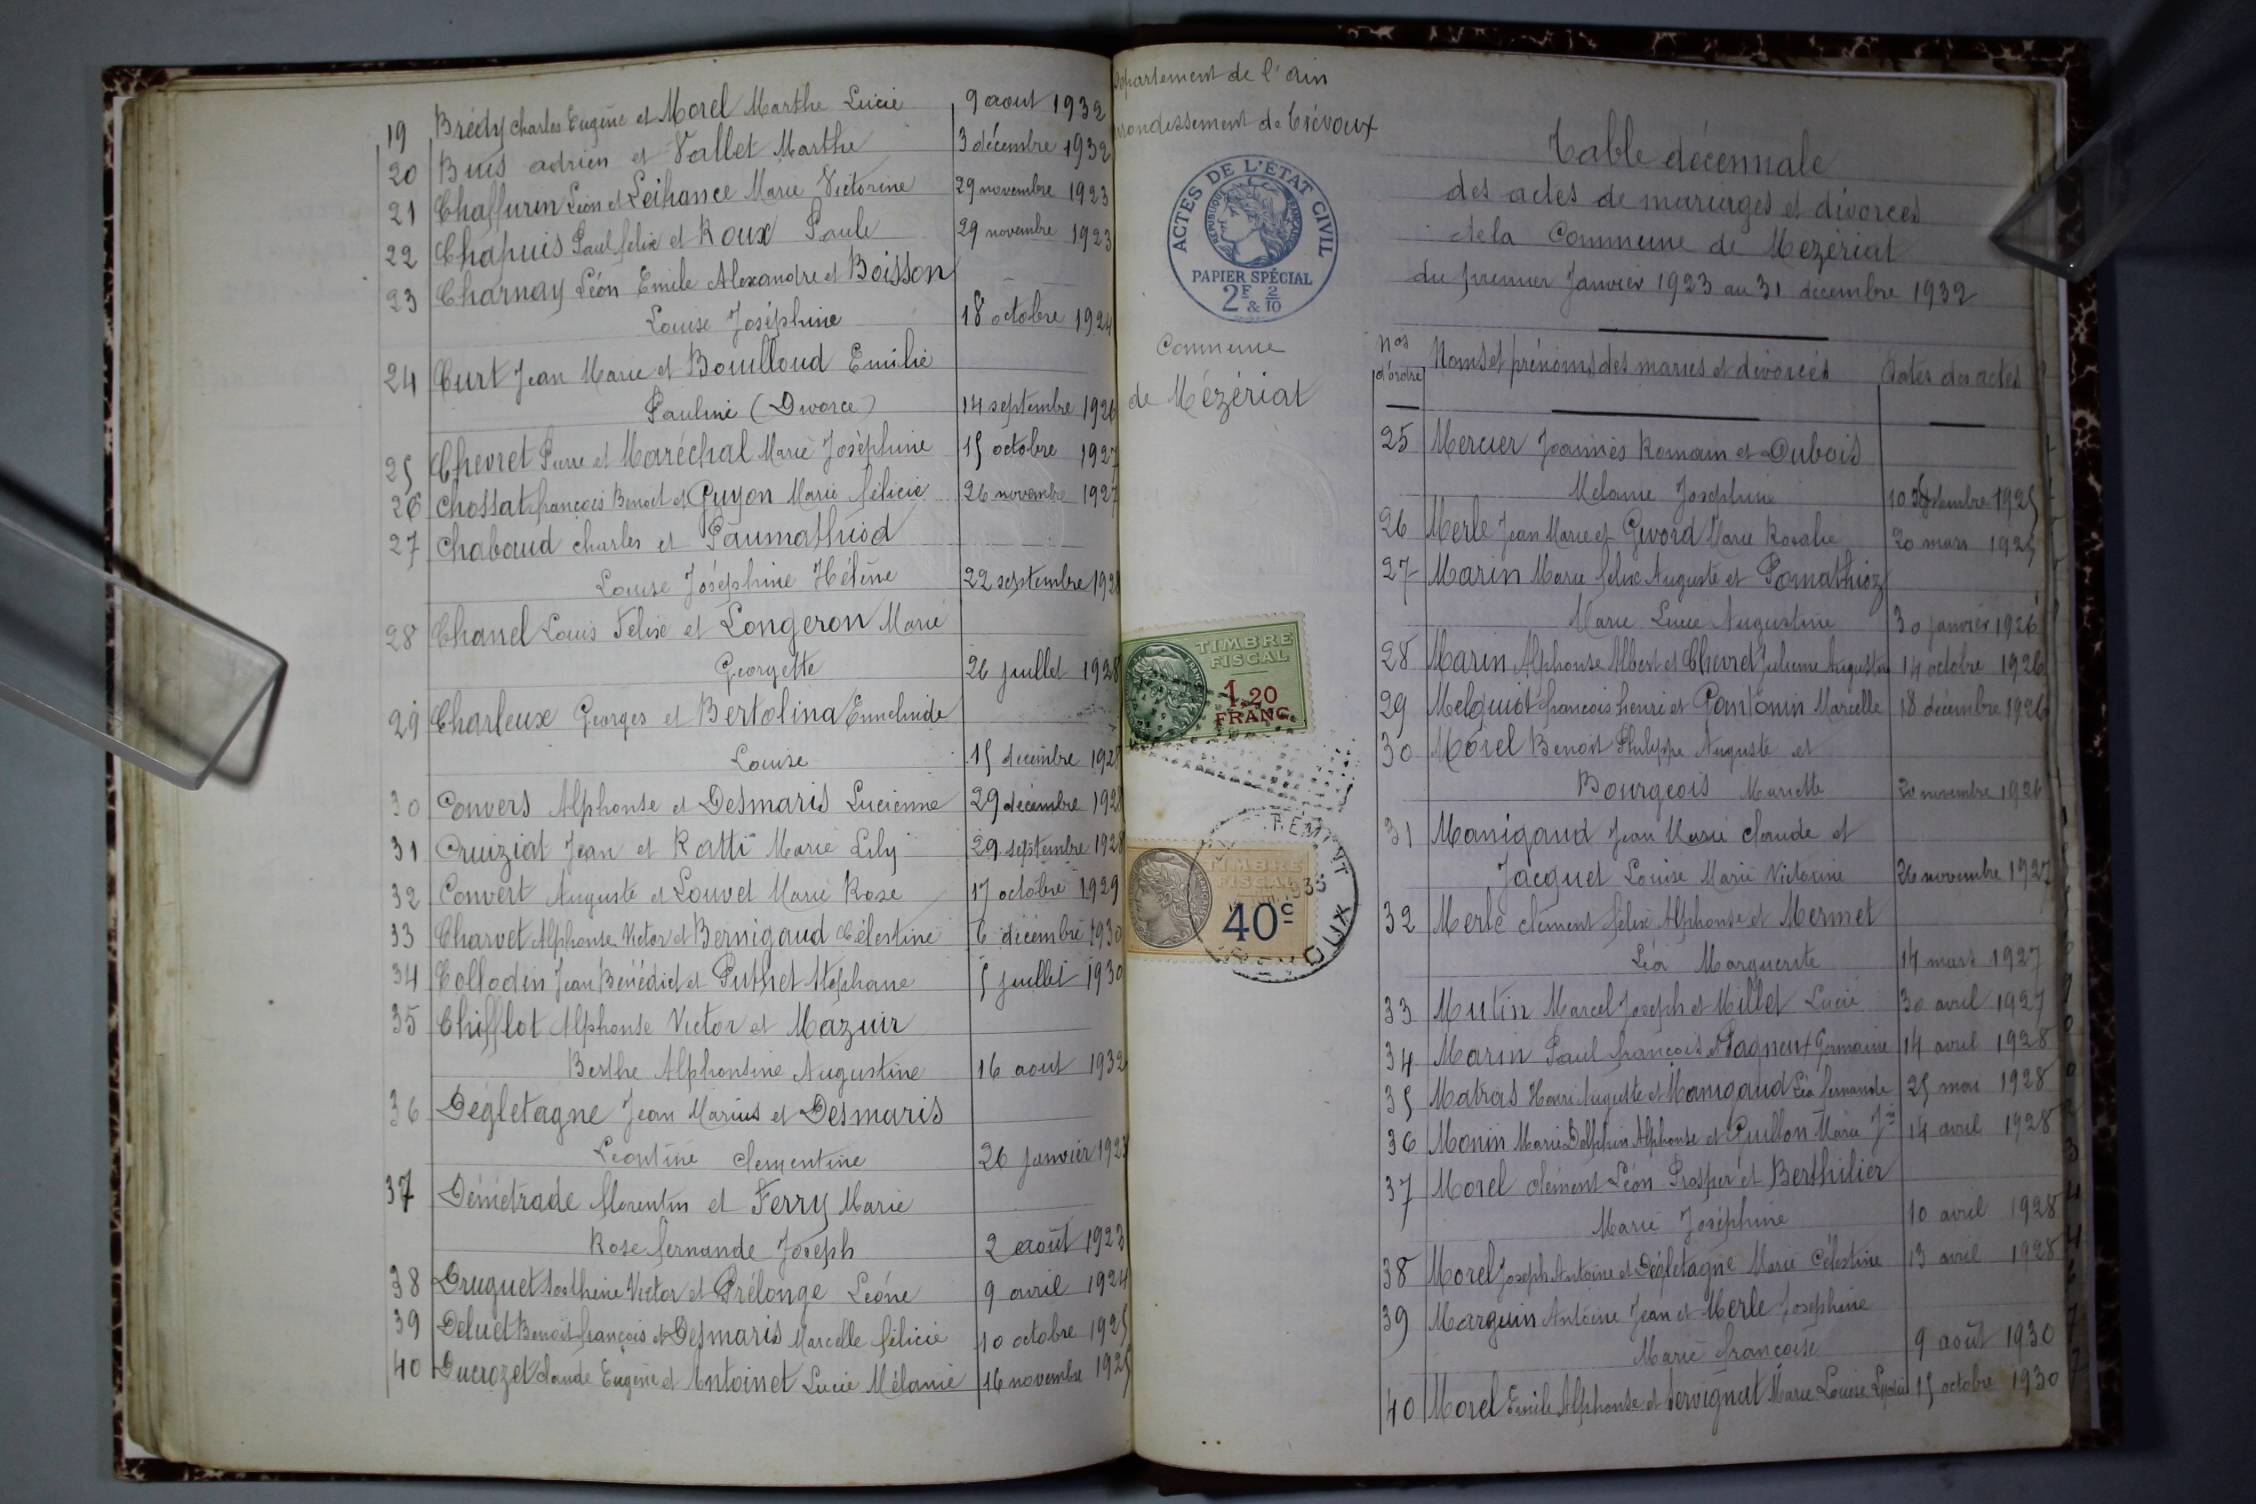 19 Brédy Charles Eugène et Morel Marthe Lucie 9 aout 1932
20 Buis adrien et Vallet Marthe 3 décembre 1932
21 Chaffurin Léon et Leihance Marie Victorine 29 novembre 1923
22 Chapuis Paul félix et Roux Paule 29 novembre 1923
23 Charnay Léon Emile Alexandre et Boisson
Louise Joséphine 18 octobre 1924
24 Curt Jean Marie et Bouilloud Emilie
Pauline (Divorce) 14 septembre 1926
25 Chevret Pierre et Maréchal Marie Joséphine 15 octobre 1927
26 Chossat françois Benoit et Guyon Marie félicie 26 novembre 1927
27 Chaboud charles et Paumathiod
Louise Joséphine Hélène 22 septembre 1928
28 Chanel Louis Felix et Longeron Marie
Georgette 26 juillet 1928
29 Charleux Georges et Bertolina
Louise 15 decembre 1928
30 Convers Alphonse et Desmaris Lucienne 29 décembre 1928
31 Cruiziat Jean et Ratti Marie Lily 29 septembre 1928
32 Convert Auguste et Louvet Marie Rose 17 octobre 1929
33 Charvet Alphonse Victor et Bernigaud Célestine 6 décembre 1930
34 Collodin Jean Bénédict et Puthet Stéphane 5 juillet 1930
35 Chifflot Alphonse Victor et Mazuir
Berthe Alphonsine Augustine 16 aout 1932
36 Dégletagne Jean Marius et Desmaris
Léontine clementine 26 janvier 1923
37 Démétrade florentin et Ferry Marie
Rose fernande Joseph 2 août 1923
38 Druguet Victor et Prélonge Léone 9 avril 1924
39 Deluet Benoit françois et Desmaris Marcelle félicie 10 octobre 1925
40 Ducrozet claude Eugène et Antoinet Lucie Mélanie 16 novembre 1925
Département de l'ain
rrondissement de Trévoux
ACTES DE L'ÉTAT CIVIL
RÉPUBLIQUE FRANÇAISE
PAPIER SPÉCIAL
2F & 2/10
Commune
de Mézériat
TIMBRE
FISCAL
1,20
FRANC
TIMBRE
FISCAL
40c
Table décennale
des actes de mariages et divorces
de la Commune de Mézériat
du premier Janvier 1923 au 31 decembre 1932
Nos d'ordre Noms et prénoms des mariés et divorcés Dates des actes
25 Mercier Joannès Romain et Dubois
Melanie Josephine 10 septembre 1925
26 Merle Jean Marie et Givord Marie Rosalie 20 mars 1925
27 Marin Marie felix Auguste et Pomathioz
Marie Lucie Augustine 30 janvier 1926
28 Marin Alphonse Albert et Chevret Julienne Augustin 14 octobre 1926
29 Melquiot françois henri et Pantonin Marcelle 18 décembre 1926
30 Morel Benoit Philippe Auguste et
Bourgeois Mariette 20 novembre 1926
31 Manigaud Jean Marie claude et
Jacquet Louise Marie Victorine 26 novembre 1927
32 Merle clement félix Alphonse et Mermet
Léa Marguerite 14 mars 1927
33 Mutin Marcel Joseph et Millet Lucie 30 avril 1927
34 Marin Paul françois et Pagneux Germaine 14 avril 1928
35 Matras Henri Auguste et Manigaud Léa fernande 25 mai 1928
36 Monin Marie Delphin Alphonse et Guillon Marie Jne 14 avril 1928
37 Morel clément Léon Prosper et Berthilier
Marie Joséphine 10 avril 1928
38 Morel Joseph Antoine et Dégletagne Marie Célestine 13 avril 1928
39 Marguin Antoine Jean et Merle Josephine
Marie françoise 9 août 1930
40 Morel Emile Alphonse et Servignat Marie Louise 15 octobre 1930